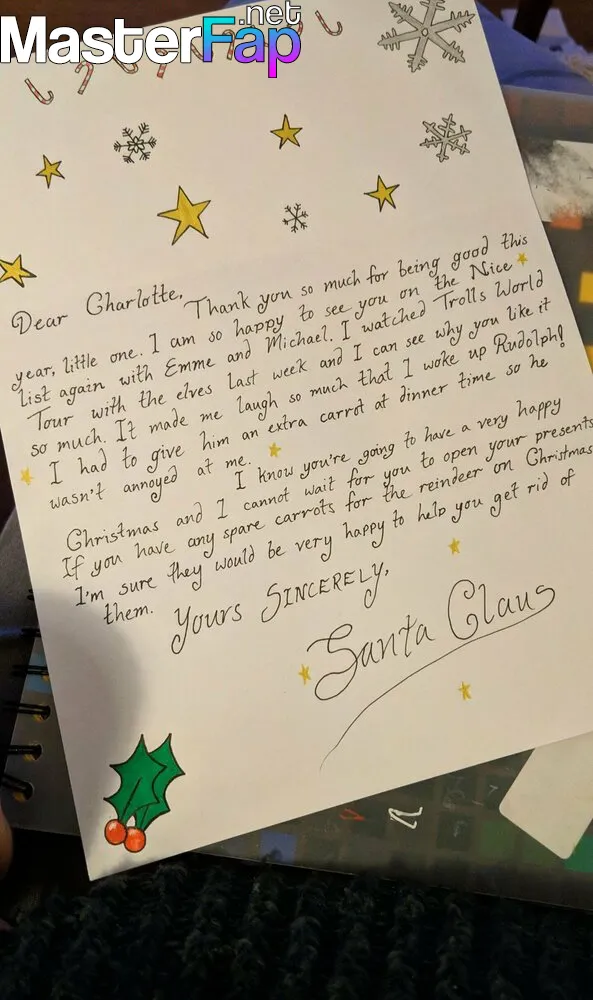 MasterFap.net
Dear Charlotte,
Thank you so much for being good this
year, little one. I am so happy to see you on the Nice
list again with Emme and Michael. I watched Trolls World
Tour with the elves last week and I can see why you like it
so much. It made me laugh so much that I woke up Rudolph!
I had to give him an extra carrot at dinner time so he
wasn't annoyed at me.
I know you're going to have a very happy
Christmas and I cannot wait for you to open your presents
If you have any spare carrots for the reindeer on Christmas
I'm sure they would be very happy to help you get rid of
them.
Yours Sincerely,
Santa Claus